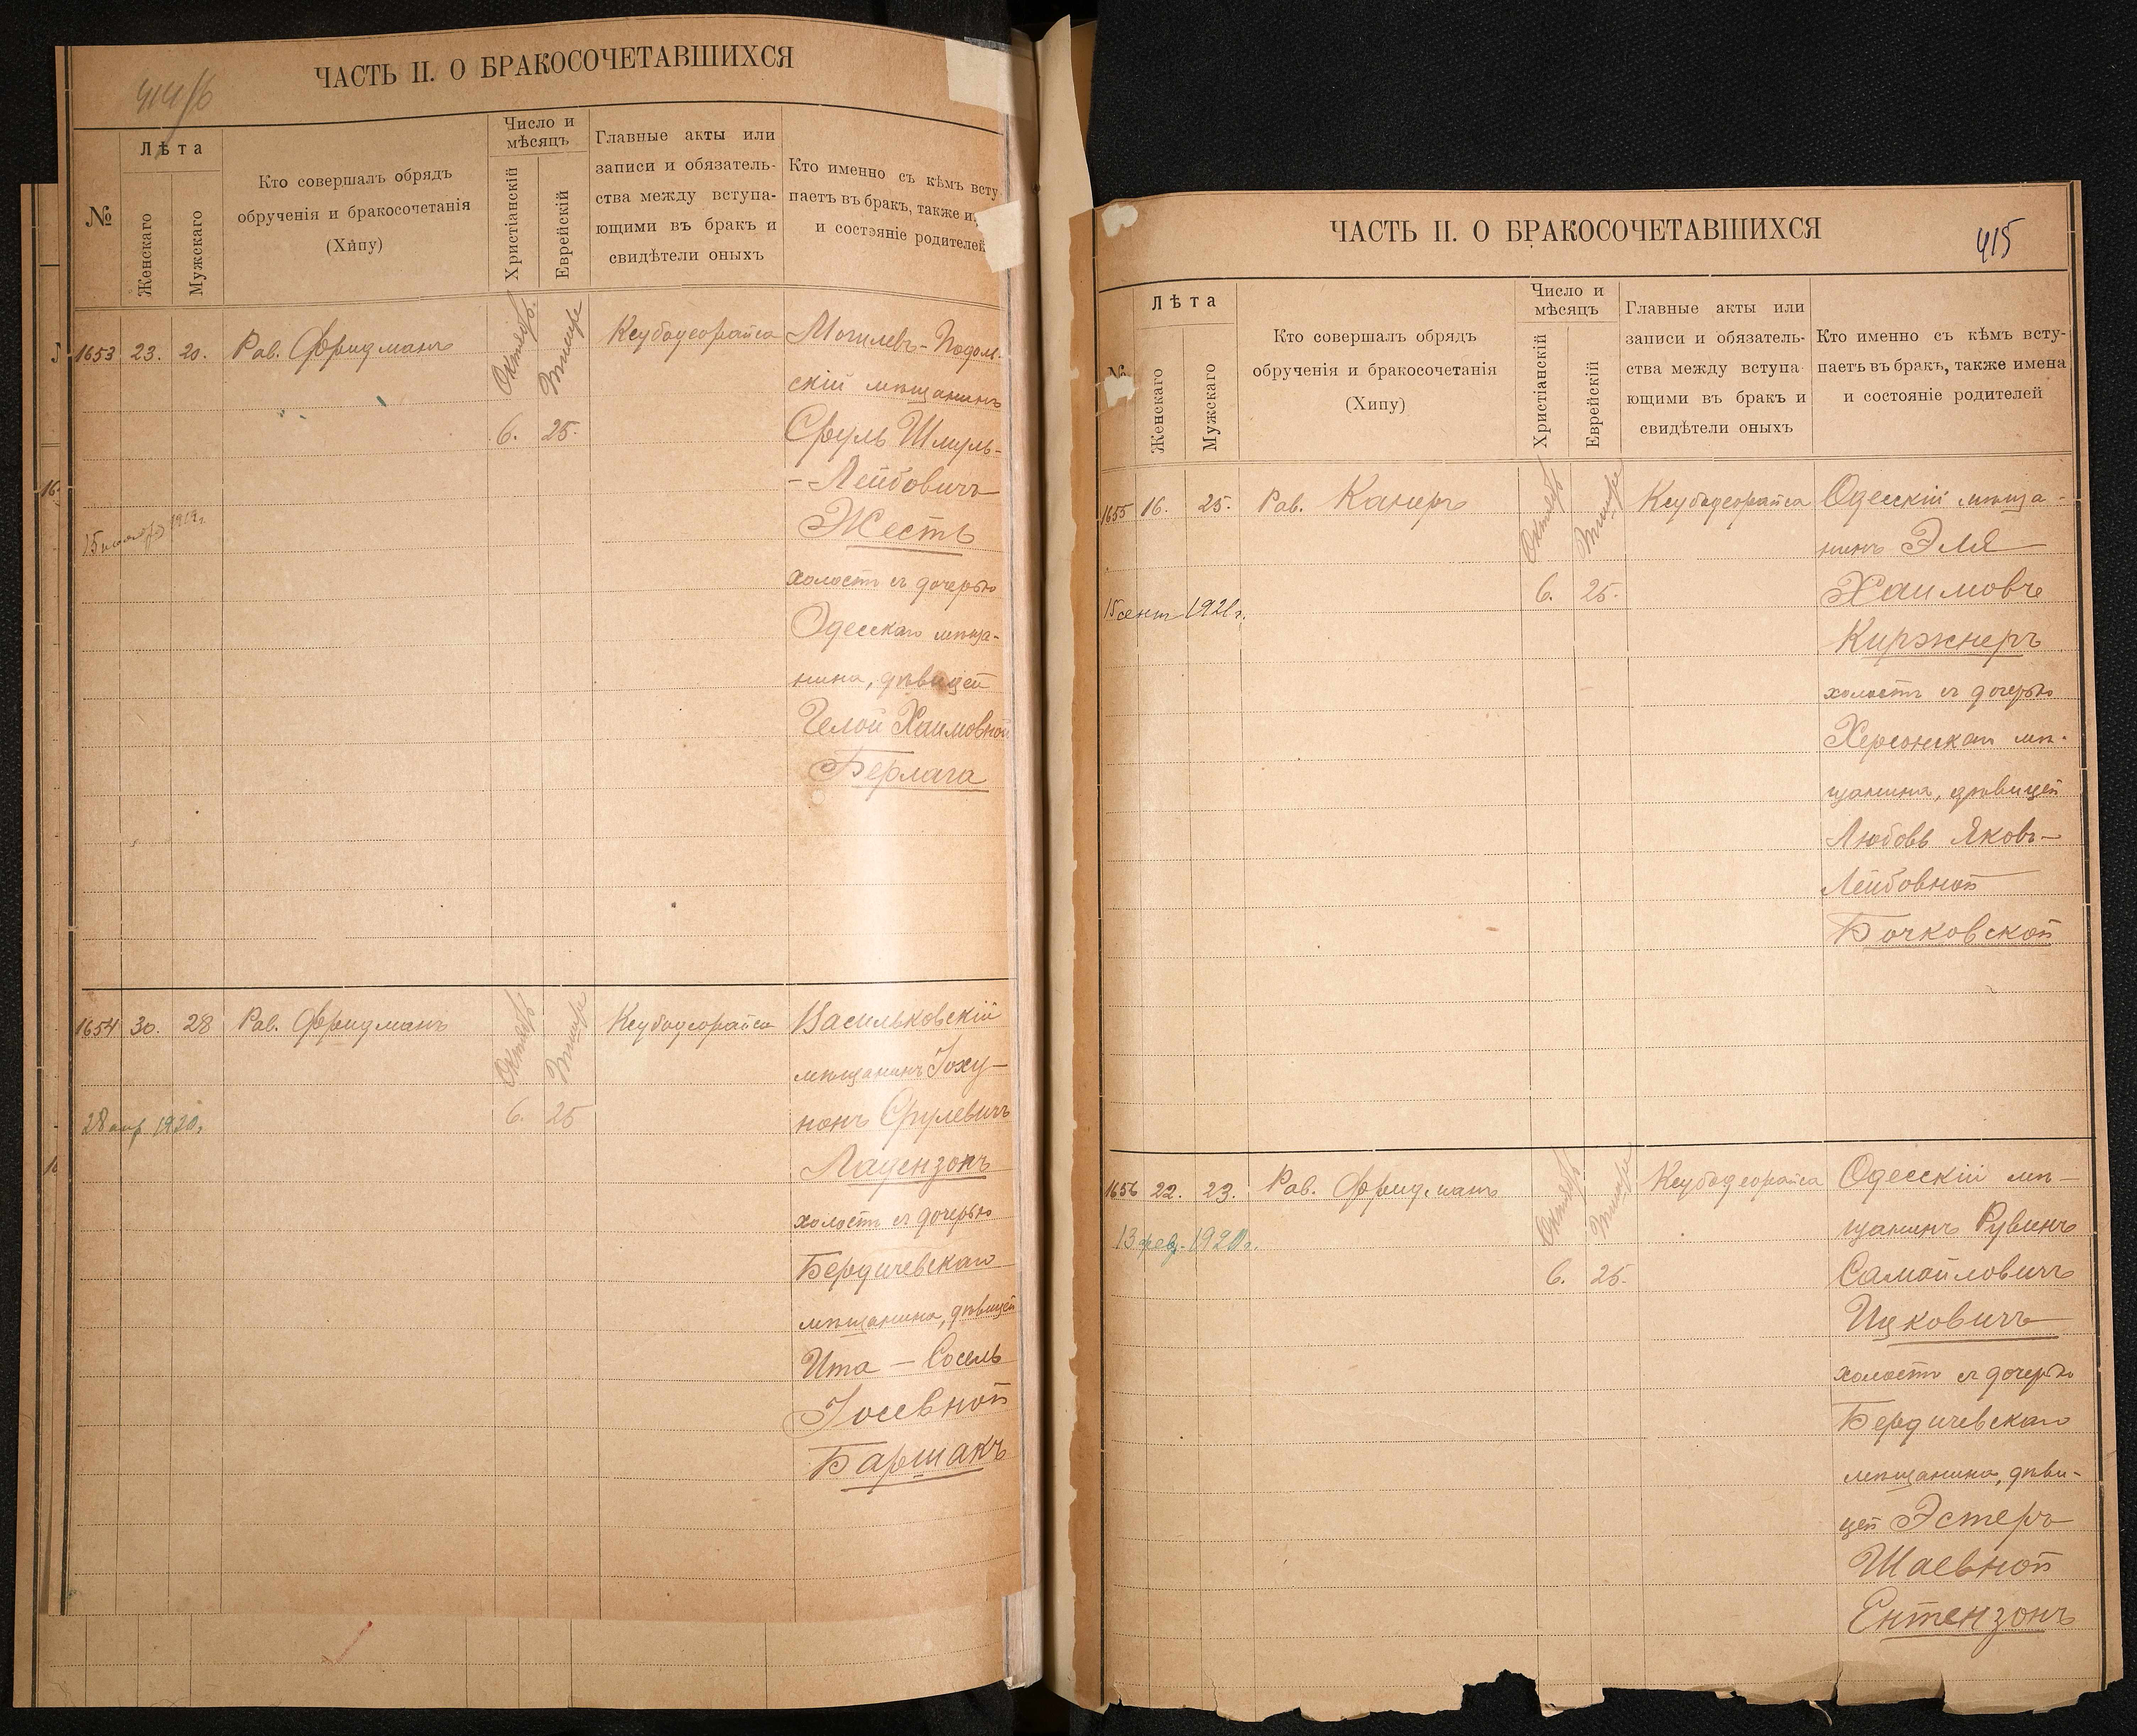 414/б
ЧАСТЬ II. О БРАКОСОЧЕТАВШИХСЯ
№
Лѣта
Женскаго
Мужскаго
Кто совершалъ обрядъ
обрученія и бракосочетанія
(Хипу)
Число и
мѣсяцъ
Христіанскій
Еврейскій
Главные акты или
записи и обязатель-
ства между вступа-
ющими въ бракъ и
свидѣтели оныхъ
Кто именно съ кѣмъ всту
паетъ въ бракъ, также и
и состояніе родителей
1653 23. 20. Рав. Фридманъ Октябр. Тишри Ксубадеорайса Могилевъ-Подоль-
скій мѣщанинъ
6. 25. Сруль Шмуль-
- Лейбовичъ
15 1919г.
Жесть
холостъ съ дочерью
Одесскаго мѣща-
нина, дѣвицей
Челой Хаимовной
Берлага
1654 30. 28 Рав. Фридманъ Октябр Тишри Ксубадеорайса Васильковскій
мѣщанинъ Іоху-
28 апр 1920г. 6. 25 нонъ Срулевичъ
Ладензонъ
холостъ съ дочерью
Бердичевскаго
мѣщанина, дѣвицей
Ита - Сосель
Іосевной
Баршакъ
ЧАСТЬ II. О БРАКОСОЧЕТАВШИХСЯ
415
№
Лѣта
Женскаго
Мужскаго
Кто совершалъ обрядъ
обрученія и бракосочетанія
(Хипу)
Число и
мѣсяцъ
Христіанскій
Еврейскій
Главные акты или
записи и обязатель-
ства между вступа-
ющими въ бракъ и
свидѣтели оныхъ
Кто именно съ кѣмъ всту-
паетъ въ бракъ, также имена
и состояніе родителей
1655 16. 25. Рав. Канеръ Октябр Тишри Ксубадеорайса Одесскій мѣща-
нинъ Эля
15 сент 1921г. 6. 25. Хаимовъ
Киржнеръ
холостъ съ дочерью
Херсонскаго мѣ-
щанина, дѣвицей
Любовь Яковъ-
Лейбовной
Бочковской
1656 22. 23. Рав. Фридманъ Октябр Тишри Ксубадеорайса Одесскій мѣ-
13 фев. 1920г. щанинъ Рувинъ
6. 25. Самойловичъ
Ицковичъ
холостъ съ дочерью
Бердичевскаго
мѣщанина, дѣви-
цей Эстеръ
Шаевной
Ентензонъ